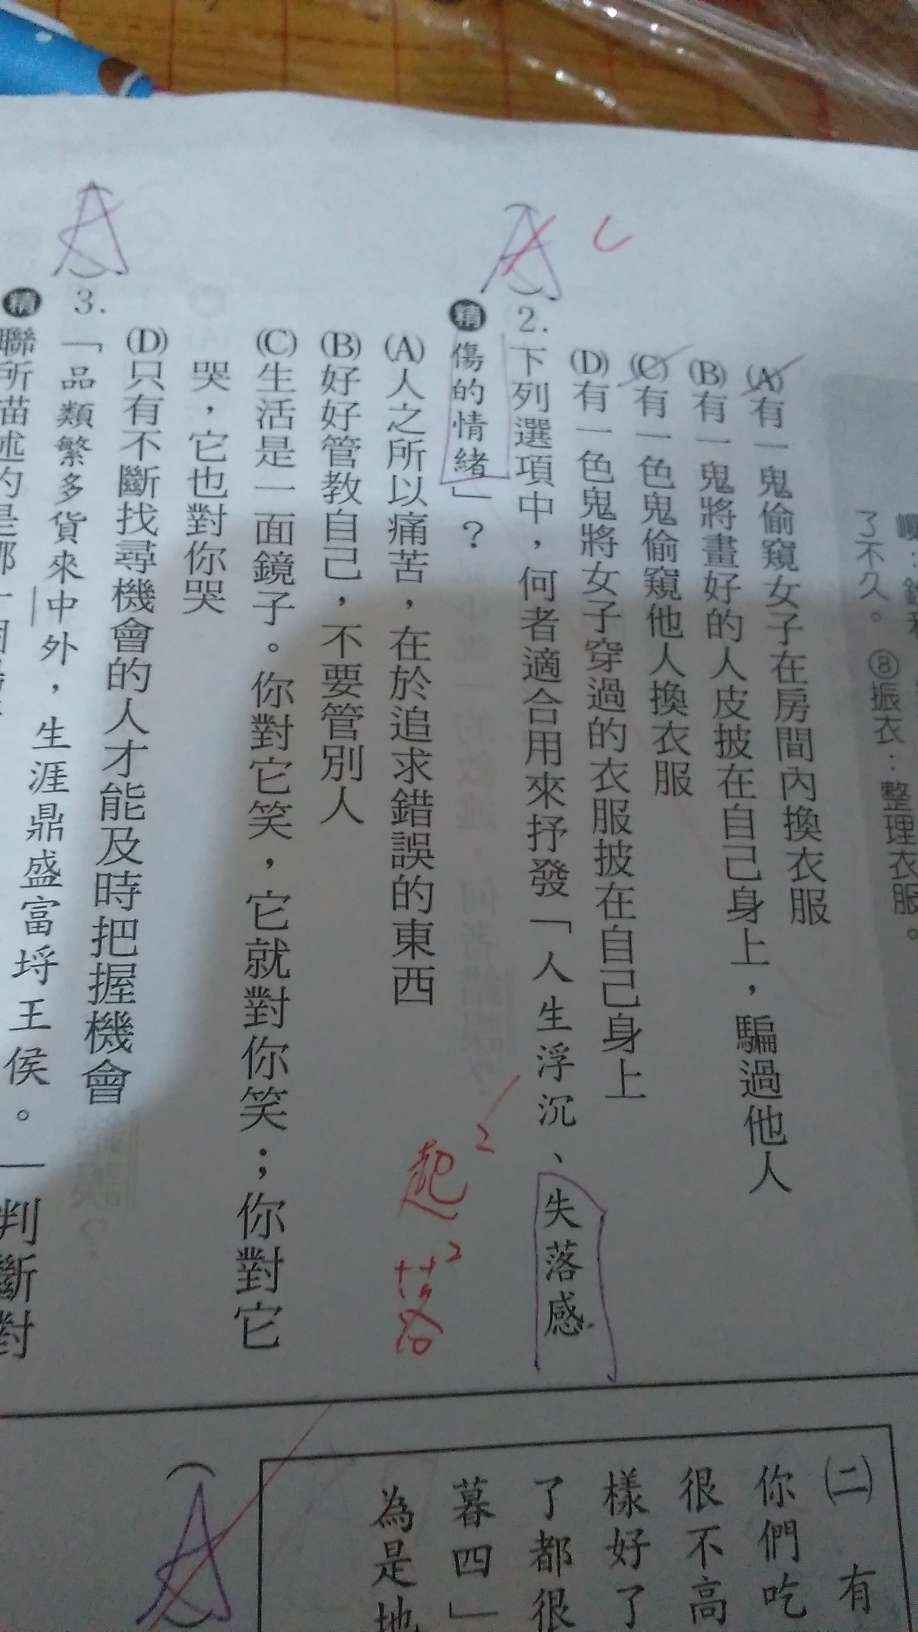 了不久。⑧振衣：整理衣服。
(A)有一鬼偷窺女子在房間內換衣服
(B)有一鬼將畫好的人皮披在自己身上，騙過他人
(C)有一色鬼偷窺他人換衣服
(D)有一色鬼將女子穿過的衣服披在自己身上
(A) C
2.下列選項中，何者適合用來抒發「人生浮沉、失落感
精 傷的情緒」？
起2落2
(A)人之所以痛苦，在於追求錯誤的東西
(B)好好管教自己，不要管別人
(C)生活是一面鏡子。你對它笑，它就對你笑；你對它
哭，它也對你哭
(D)只有不斷找尋機會的人才能及時把握機會
(A)
3.「品類繁多貨來中外，生涯鼎盛富埒王侯。」判斷對
精 聯所描述的是哪一個
(二)有
你們吃
很不高
樣好了
了都很
暮四」
為是地
(A)